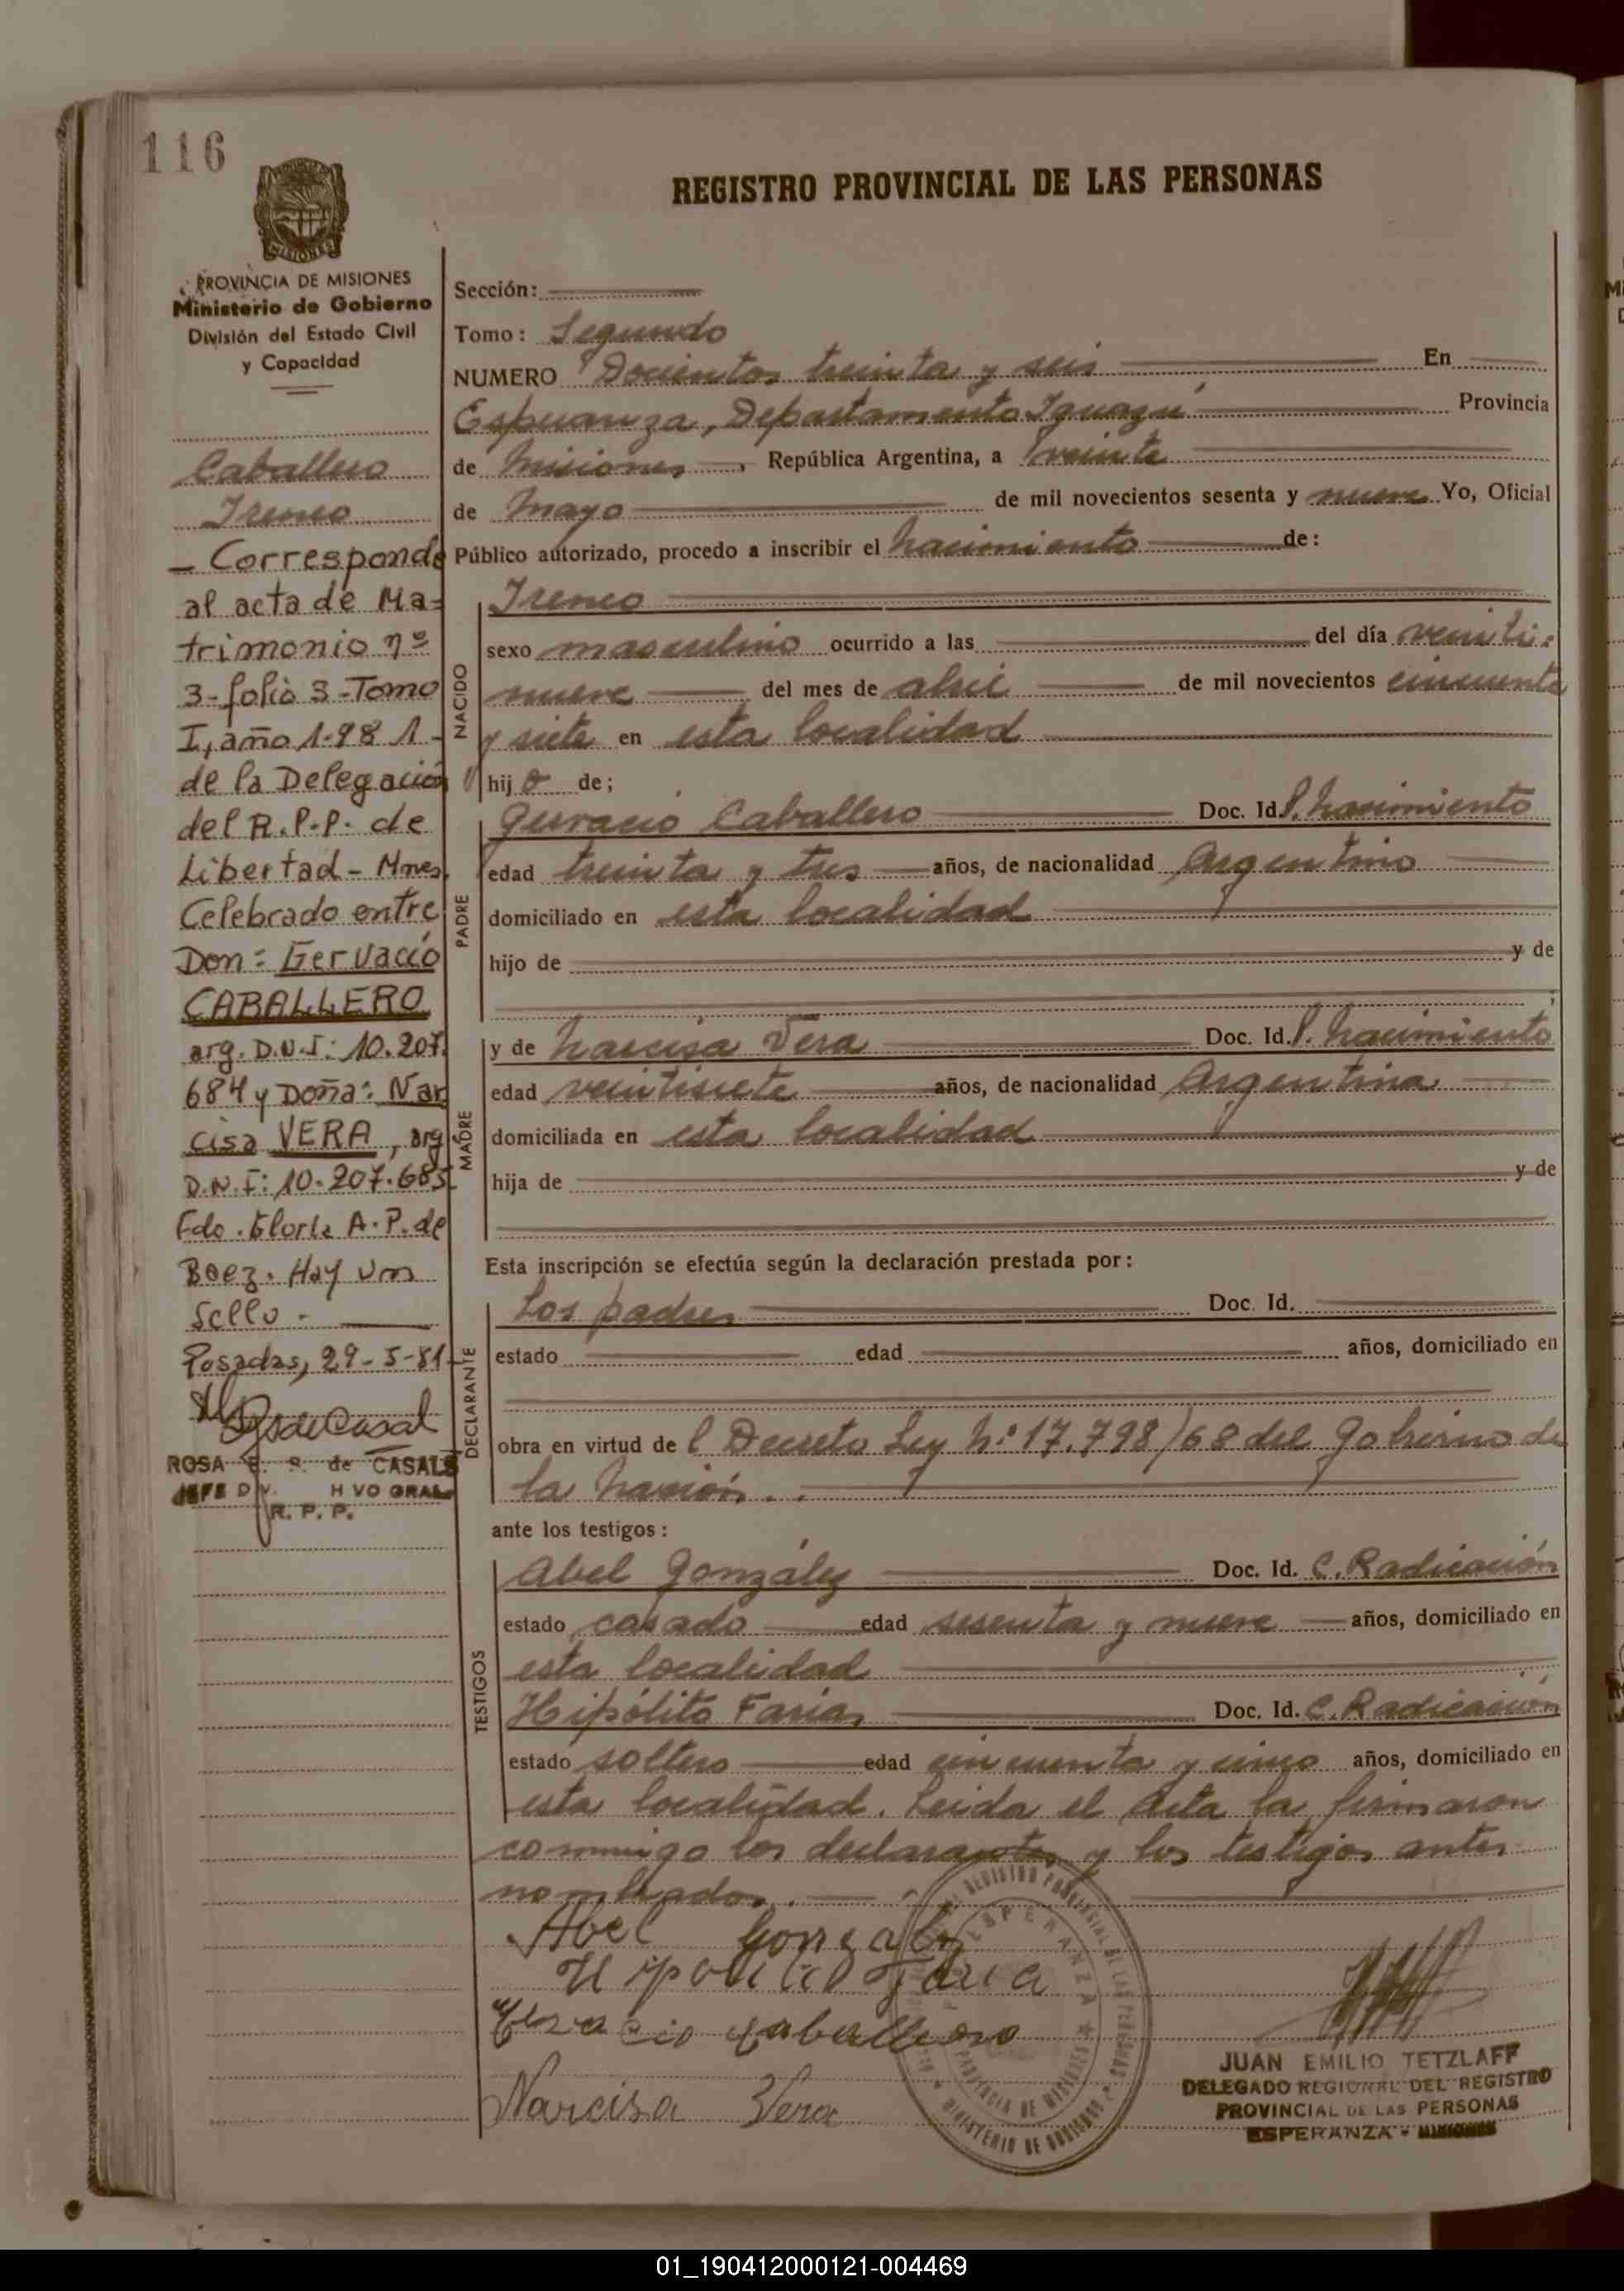 116
REGISTRO PROVINCIAL DE LAS PERSONAS
MISIONES
PROVINCIA DE MISIONES
Ministerio de Gobierno
División del Estado Civil
y Capacidad
Caballero
Ireneo
- Corresponde
al acta de Ma=
trimonio nº
3-folio 3-Tomo
I, año 1.981-
de la Delegación
del R.P.P. de
Libertad - Mnes.
Celebrado entre
Don = Gervacio
CABALLERO
arg. D.N.I: 10.207.
684 y Doña: Nar
cisa VERA, arg
D.N.I: 10.207.685
Fdo. Gloria A.P. de
Baez. Hay un
Sello -
Posadas, 29-5-81
ROSA E. de CASALS
JEFE DIV. H VO GRAL.
R. P. P.
Sección:
Tomo: Segundo
NUMERO Docientos treinta y seis En
Esperanza, Departamento Iguazú Provincia
de Misiones, República Argentina, a veinte
de Mayo de mil novecientos sesenta y nueve Yo, Oficial
Público autorizado, procedo a inscribir el nacimiento de:
NACIDO
Ireneo
sexo masculino ocurrido a las del día veinti=
nueve del mes de abril de mil novecientos cincuenta
y siete en esta localidad
hijo de;
PADRE
Gervacio Caballero Doc. Id. P. nacimiento
edad treinta y tres años, de nacionalidad Argentino
domiciliado en esta localidad
hijo de y de
;
MADRE
y de Narcisa Vera Doc. Id. P. nacimiento
edad veintisiete años, de nacionalidad Argentina
domiciliada en esta localidad
hija de y de
Esta inscripción se efectúa según la declaración prestada por:
DECLARANTE
Los padres Doc. Id.
estado edad años, domiciliado en
obra en virtud de l Decreto Ley Nº 17.798/68 del Gobierno de
la Nación..
ante los testigos:
TESTIGOS
Abel González Doc. Id. C. Radicación
estado casado edad sesenta y nueve años, domiciliado en
esta localidad
Hipólito Farias Doc. Id. C. Radicación
estado soltero edad cincuenta y cinco años, domiciliado en
esta localidad. Leida el Acta la firmaron
conmigo los declarantes y los testigos antes
nombrados.
Abel Gonzalez
Hipolito Faria
Caballero
Narcisa Vera
REGISTRO PROVINCIAL DE LAS PERSONAS
ESPERANZA
PROVINCIA DE MISIONES
MINISTERIO DE GOBIERNO
JUAN EMILIO TETZLAFF
DELEGADO REGIONAL DEL REGISTRO
PROVINCIAL DE LAS PERSONAS
ESPERANZA - MISIONES
01_190412000121-004469